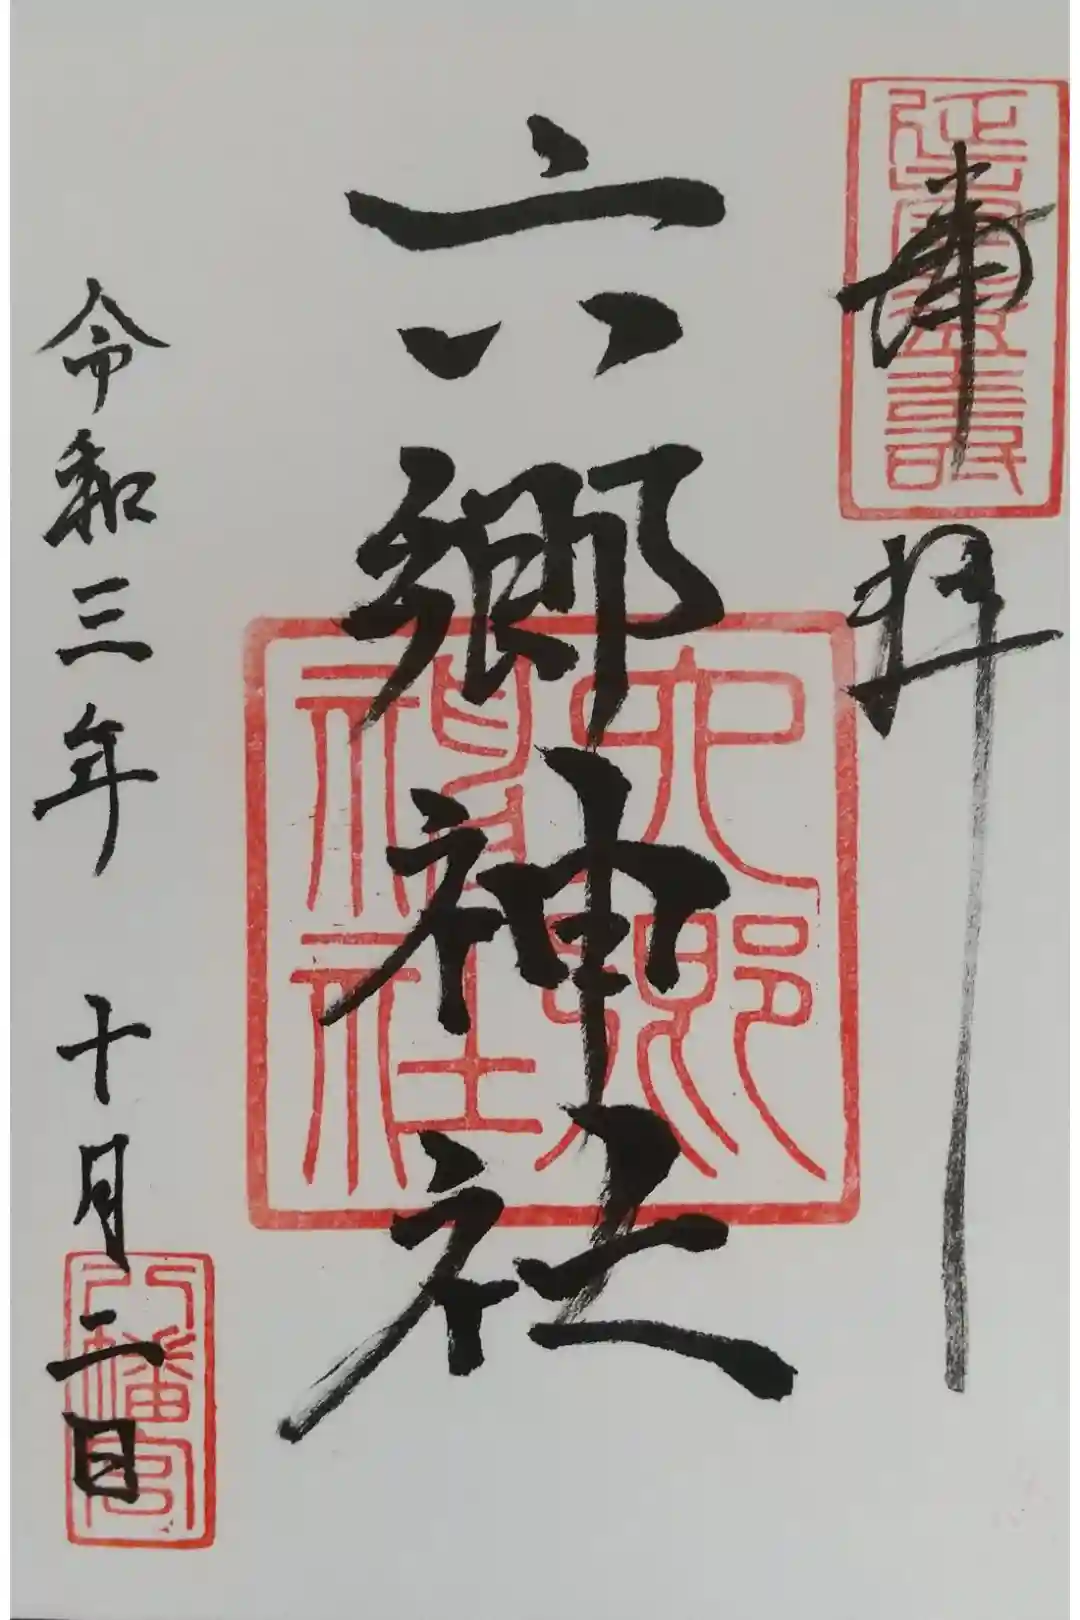 奉拝
六郷神社
六郷神社
令和三年 十月二日
八幡宮